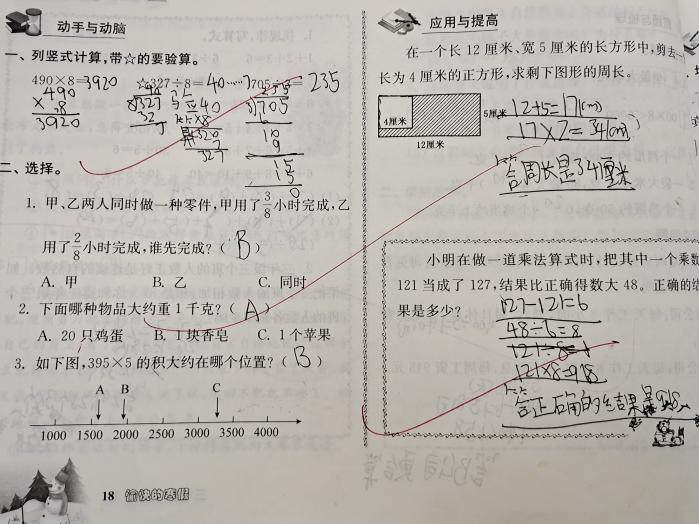 动手与动脑
一、列竖式计算,带☆的要验算。
490×8=3920 ☆327÷8=40……7 705÷3=235
490
×8
3920
40
8)327
32
7
验算
40
×8
320
+7
327
235
3)705
6
10
9
15
15
0
二、选择。
1. 甲、乙两人同时做一种零件,甲用了3/8小时完成,乙
用了2/8小时完成,谁先完成?(B)
A. 甲 B. 乙 C. 同时
2. 下面哪种物品大约重1千克?(A)
A. 20只鸡蛋 B. 1块香皂 C. 1个苹果
3. 如下图,395×5的积大约在哪个位置?(B)
A B C
1000 1500 2000 2500 3000 3500 4000
18 愉快的寒假 三
应用与提高
在一个长12厘米、宽5厘米的长方形中,剪去一
长为4厘米的正方形,求剩下图形的周长。
4厘米
5厘米
12厘米
12+5=17(cm)
17×2=34(cm)
答:周长是34厘米
小明在做一道乘法算式时,把其中一个乘数
121当成了127,结果比正确得数大48。正确的结
果是多少?
127-121=6
48÷6=8
121×8=918
答:正确的结果是918